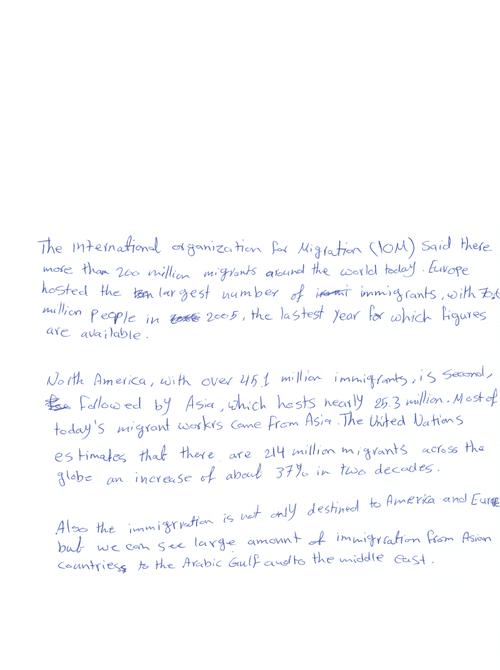 The international organization for Migration (IOM) Said there
more than 200 million migrants around the world today. Europe
hosted the largest number of immigrants, with 70.6
million people in 2005, the lastest year for which figures
are available.
North America, with over 45.1 million immigrants, is second,
followed by Asia, which hosts nearly 25.3 million. Most of
today's migrant workrs come from Asia. The United Nations
estimates that there are 214 million migrants across the
globe an increase of about 37% in two decades.
Also the immigrration is not only destined to America and Europe
but we can see large amount of immigrcation from Asian
countries to the Arabic Gulf and to the middle east.